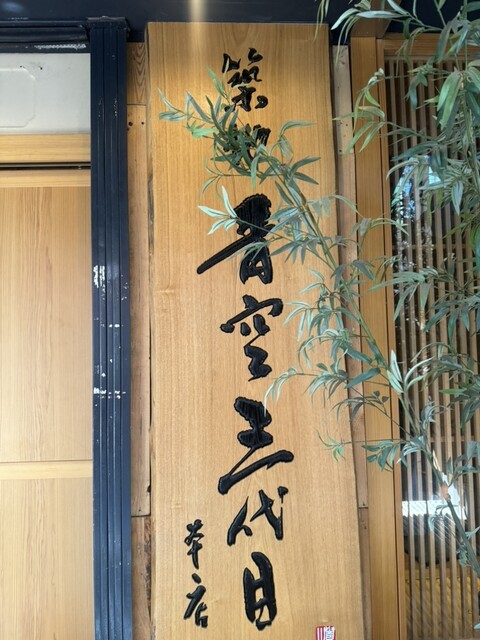 築地青空三代目
本店